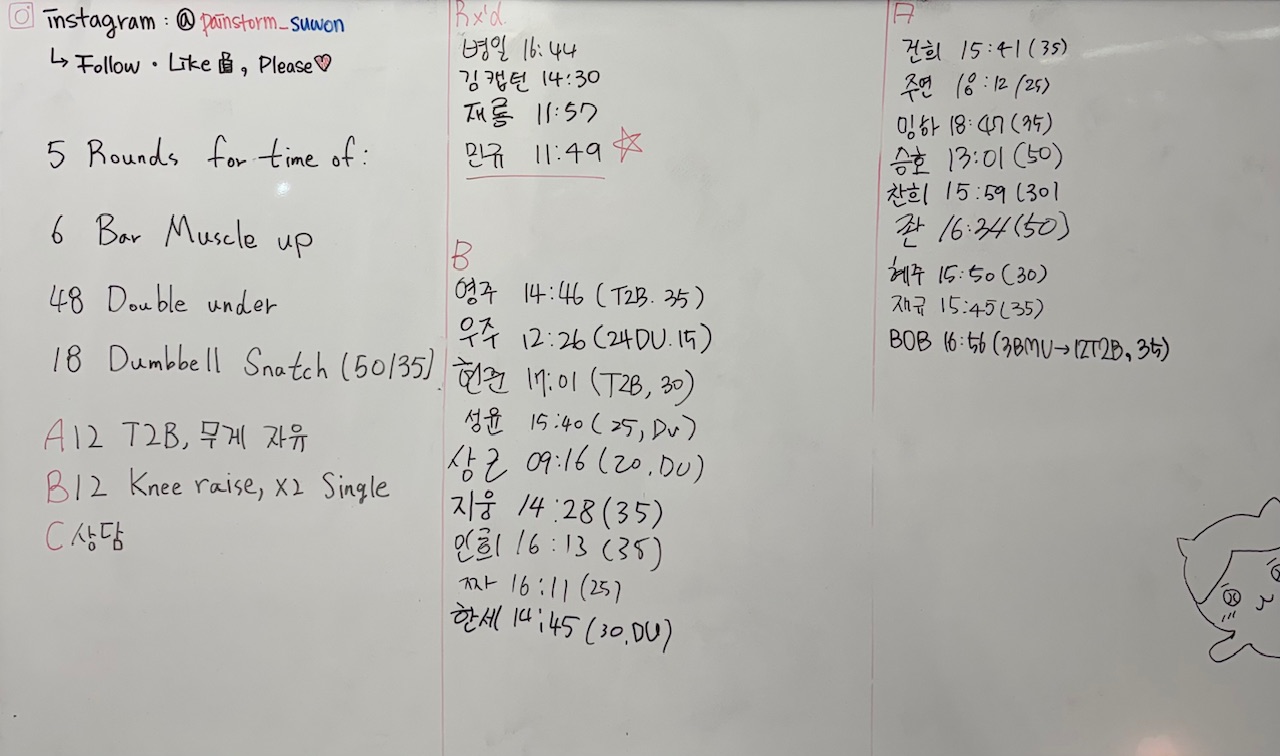 instagram : @painstorm_suwon
↳ Follow · Like, Please♡
5 Rounds for time of:
6 Bar Muscle up
48 Double under
18 Dumbbell Snatch (50/35)
A 12 T2B, 무게 자유
B 12 Knee raise, X2 Single
C 상담
Rx'd
병일 16:44
김캡틴 14:30
재룡 11:57
민규 11:49 ☆
B
영주 14:46 (T2B. 35)
우주 12:26 (24DU. 15)
현준 17:01 (T2B, 30)
성윤 15:40 (25, DU)
상근 09:16 (20. DU)
지웅 14:28 (35)
인희 16:13 (35)
짜 16:11 (25)
한세 14:45 (30. DU)
A
건희 15:41 (35)
주연 18:12 (25)
밍하 18:47 (35)
승호 13:01 (50)
찬희 15:59 (30)
존 16:34 (50)
혜주 15:50 (30)
재규 15:45 (35)
BOB 16:56 (3BMU→12T2B, 35)